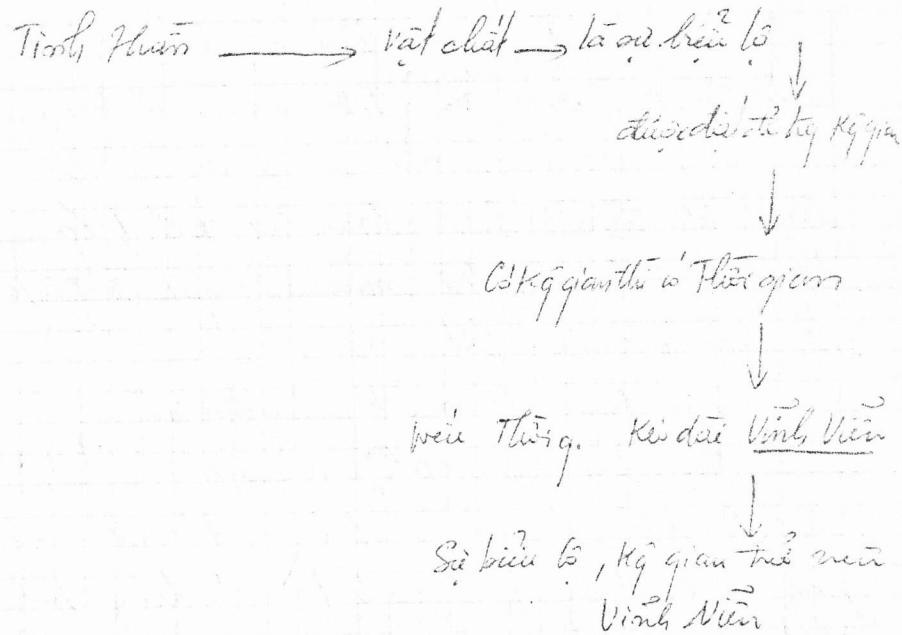 Tinh thần → vật chất → là sự biểu lộ
↓
được đặt để tg Kg gian
↓
Có Kg gian thì có Thời gian
↓
nếu Thời g. Kéo dài Vĩnh Viễn
↓
Sự biểu lộ, Kg gian trở nên
Vĩnh Viễn